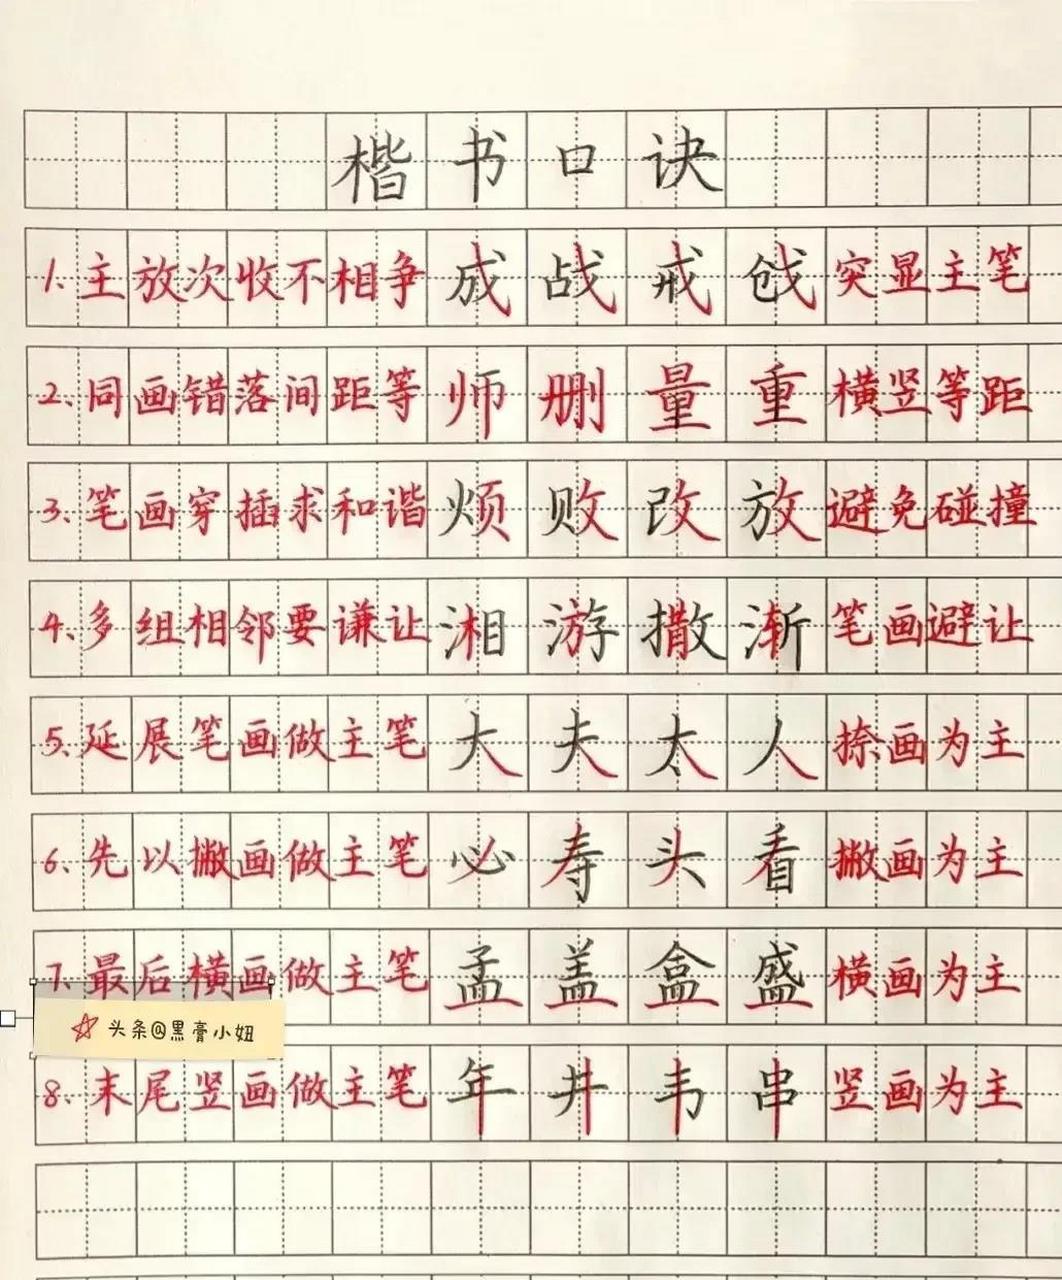 楷书口诀
1.主放次收不相争 成战戒戗 突显主笔
2、同画错落间距等 师删量重 横竖等距
3、笔画穿插求和谐 烦败改放 避免碰撞
4、多组相邻要谦让 湘游撒渐 笔画避让
5、延展笔画做主笔 大夫太人 捺画为主
6、先以撇画做主笔 必寿头看 撇画为主
7.最后横画做主笔 孟盖盒盛 横画为主
头条@黑膏小妞
8、末尾竖画做主笔 年井韦串 竖画为主